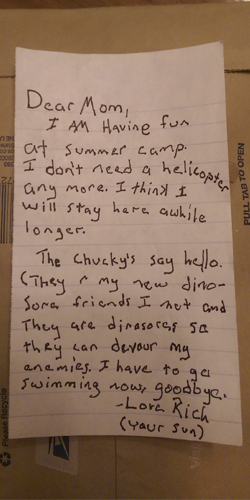 Dear Mom,
I AM Having fun
at summer camp.
I don't need a helicopter
any more. I think I
will stay here awhile
longer.
The Chucky's say hello.
(They r my new dino-
sore friends I met and
They are dinosores so
they can devour my
enemies. I have to go
swimming now, goodbye.
-Love Rich
(your sun)
PULL TAB TO OPEN
Please Recycle